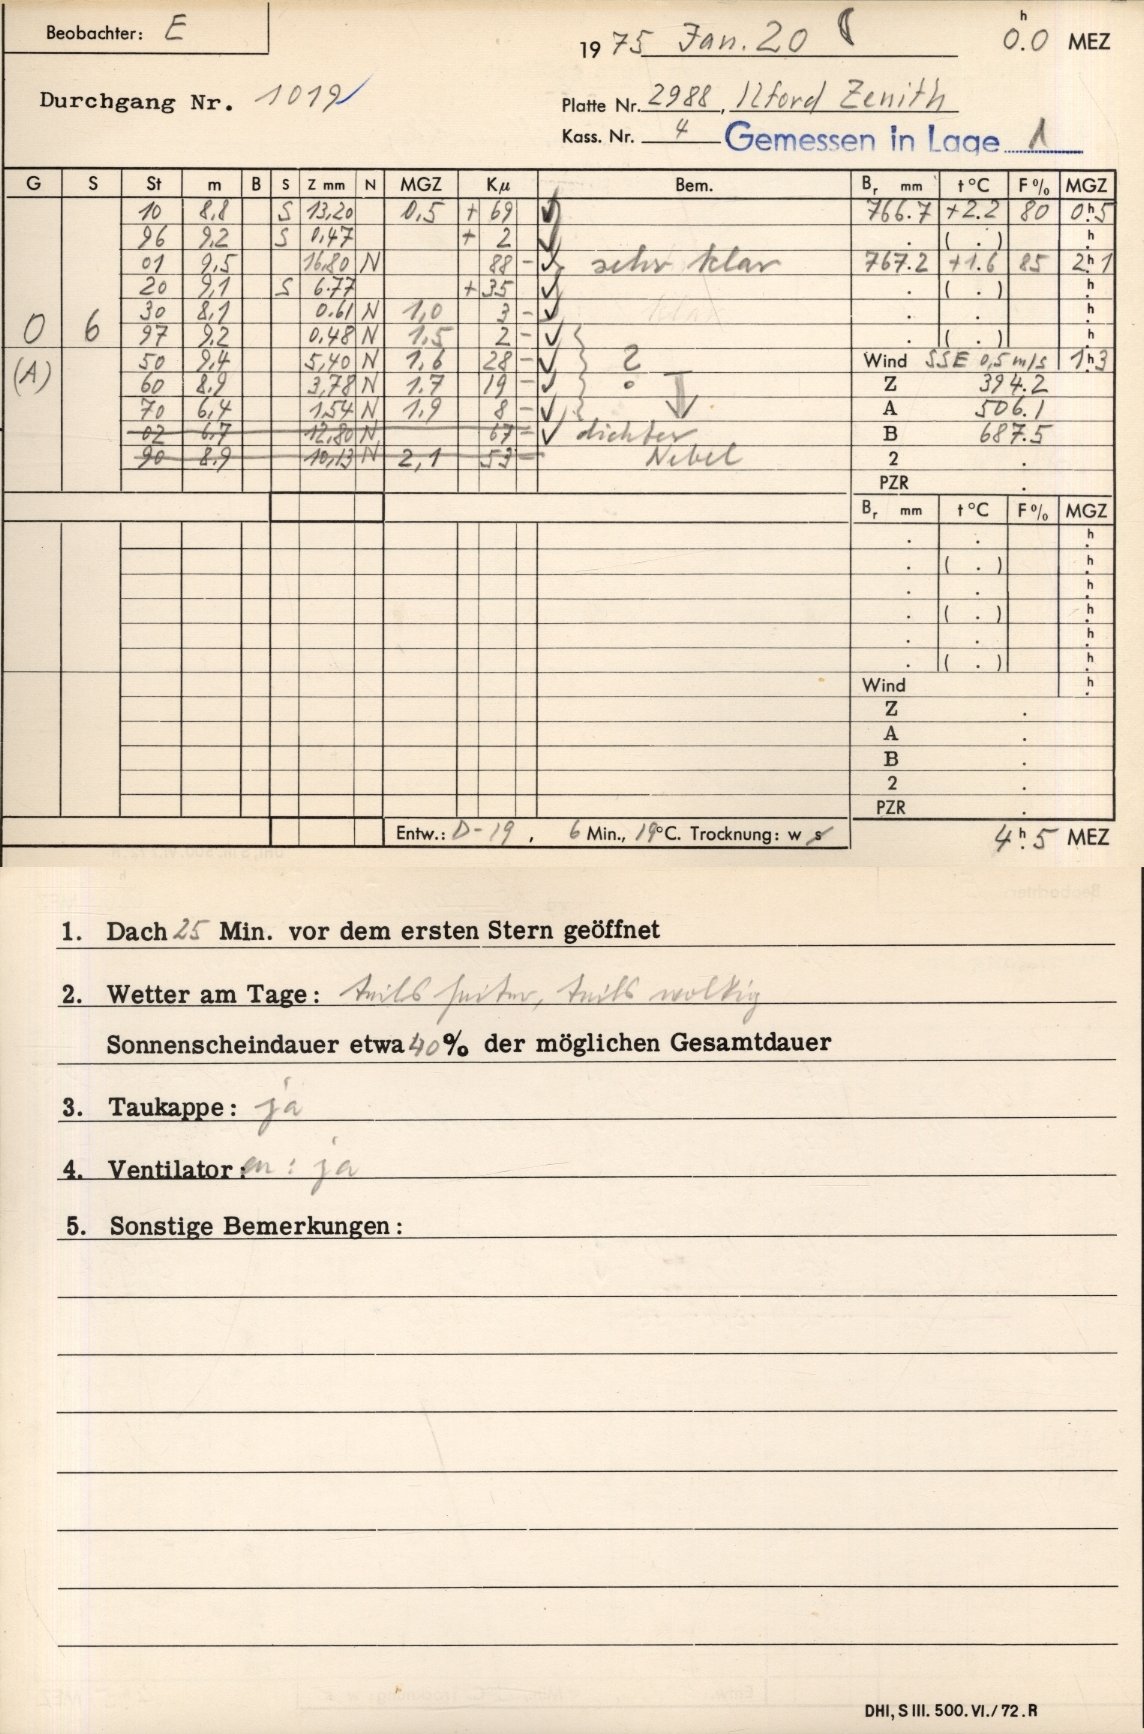 Beobachter: E
1975 Jan. 20 0.0h MEZ
Durchgang Nr. 1019
Platte Nr. 2988, Ilford Zenith
Kass. Nr. 4 Gemessen in Lage 1
G S St m B S Z mm N MGZ Kµ Bem. Br mm t°C F% MGZ
10 8,8 S 13,20 0,5 + 69 766.7 +2.2 80 0h.5
96 9,2 S 0,47 + 2 . ( . ) h.
01 9,5 16,80 N 88 - sehr klar 767.2 +1.6 85 2h.1
20 9,1 S 6.77 + 35 . ( . ) h.
30 8,1 0.61 N 1,0 3 - . . h.
0 6 97 9,2 0,48 N 1,5 2 - . ( . ) h.
(A) 50 9,4 5,40 N 1,6 28 - ? Wind SSE 0,5 m/s 1h.3
60 8,9 3,78 N 1.7 19 - Z 394.2
70 6,4 1,54 N 1,9 8 - A 506.1
02 6,7 12,80 N 67 - dichter B 687.5
90 8,9 10,13 N 2,1 53 - Nebel 2 .
PZR .
Br mm t°C F% MGZ
. . h.
. ( . ) h.
. . h.
. ( . ) h.
. . h.
. ( . ) h.
Wind h.
Z .
A .
B .
2 .
PZR .
Entw.: D-19, 6 Min., 19°C. Trocknung: w s
4h.5 MEZ
1. Dach 25 Min. vor dem ersten Stern geöffnet
2. Wetter am Tage: teils heiter, teils wolkig
Sonnenscheindauer etwa 40% der möglichen Gesamtdauer
3. Taukappe: ja
4. Ventilator: an: ja
5. Sonstige Bemerkungen:
DHI, S III. 500. VI./72. R